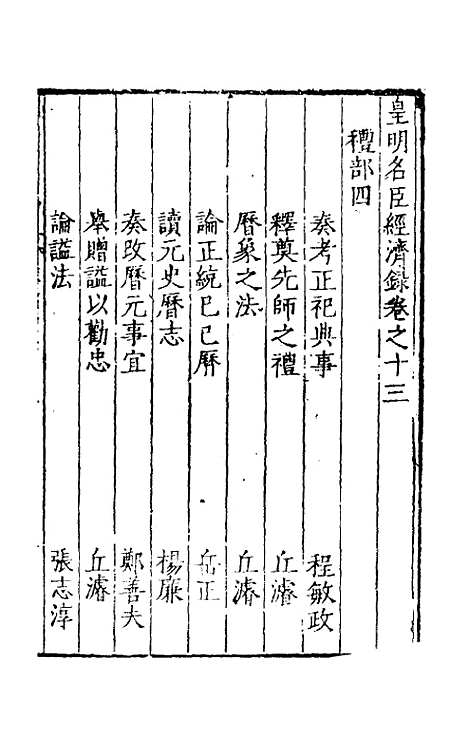 皇明名臣經濟錄卷之十三
禮部四
奏考正祀典事 程敏政
釋奠先師之禮 丘濬
曆象之法 丘濬
論正統己巳曆 岳正
讀元史曆志 楊廉
奏改曆元事宜 鄭善夫
舉贈諡以勸忠 丘濬
論諡法 張志淳